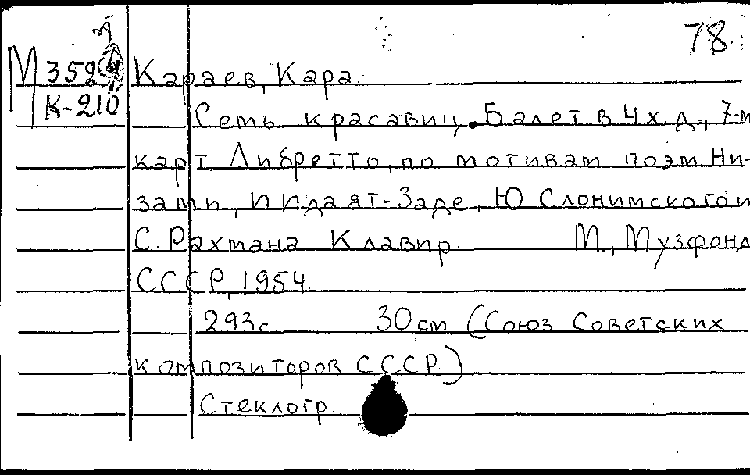 78.
М 3525 Караев, Кара.
К-210 Семь красавиц. Балет в 4х д., 7-м
карт. Либретто по мотивам поэм Ни-
зами, И Идаят-Заде, Ю Слонимского и
С. Рахмана Клавир. М., Музфонд
СССР, 1954.
293 с 30 см (Союз Советских
композиторов СССР)
Стеклогр.